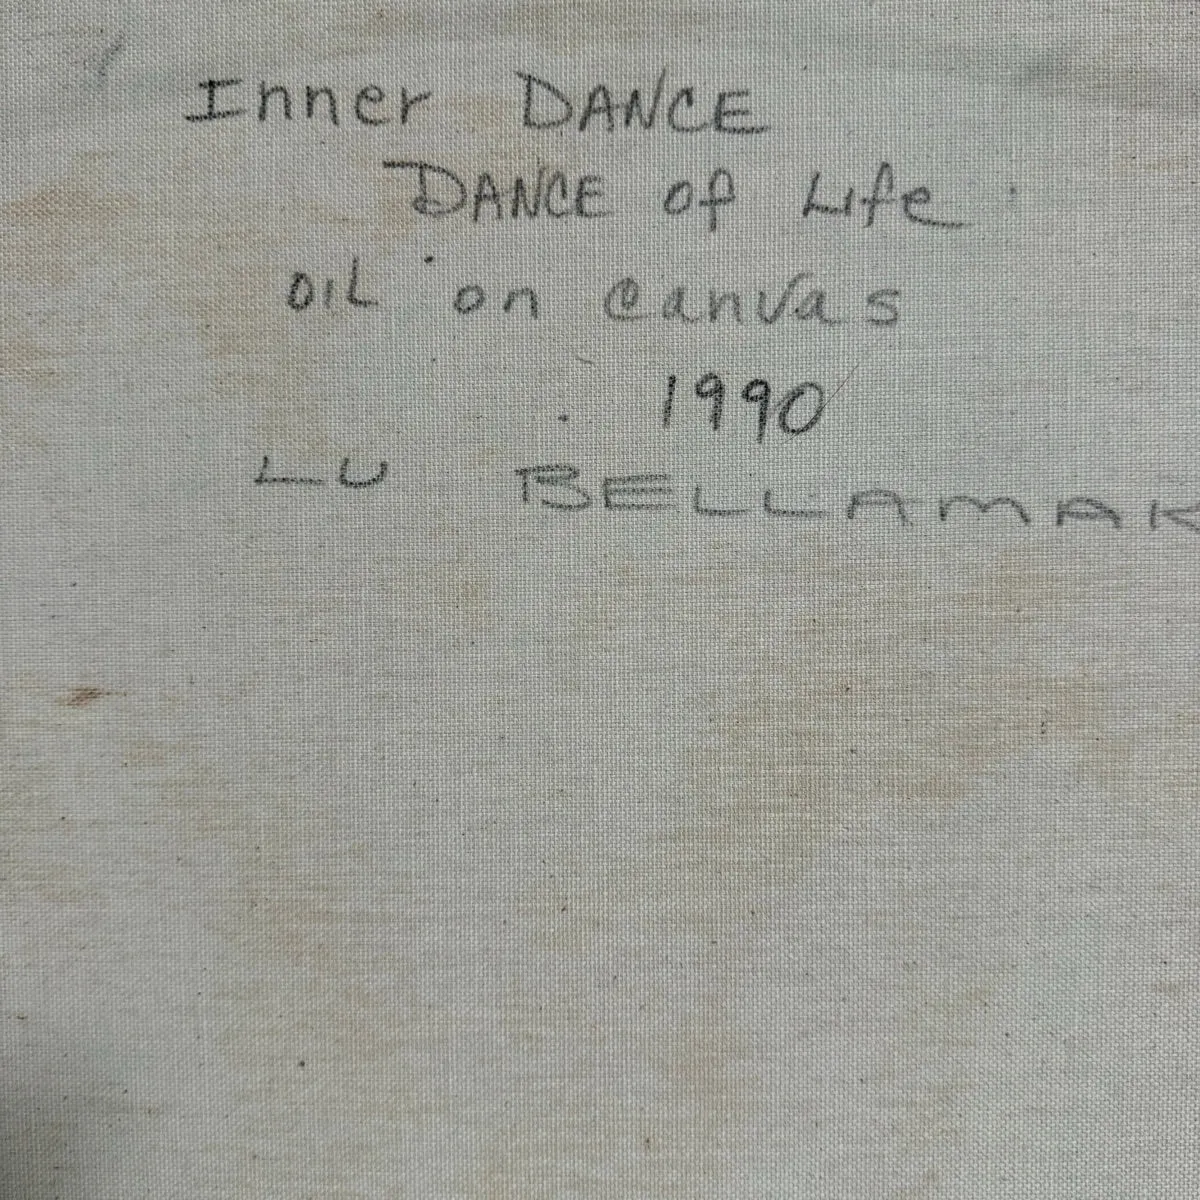 Inner DANCE
DANCE of Life
OIL on canvas
1990
LU BELLAMAK